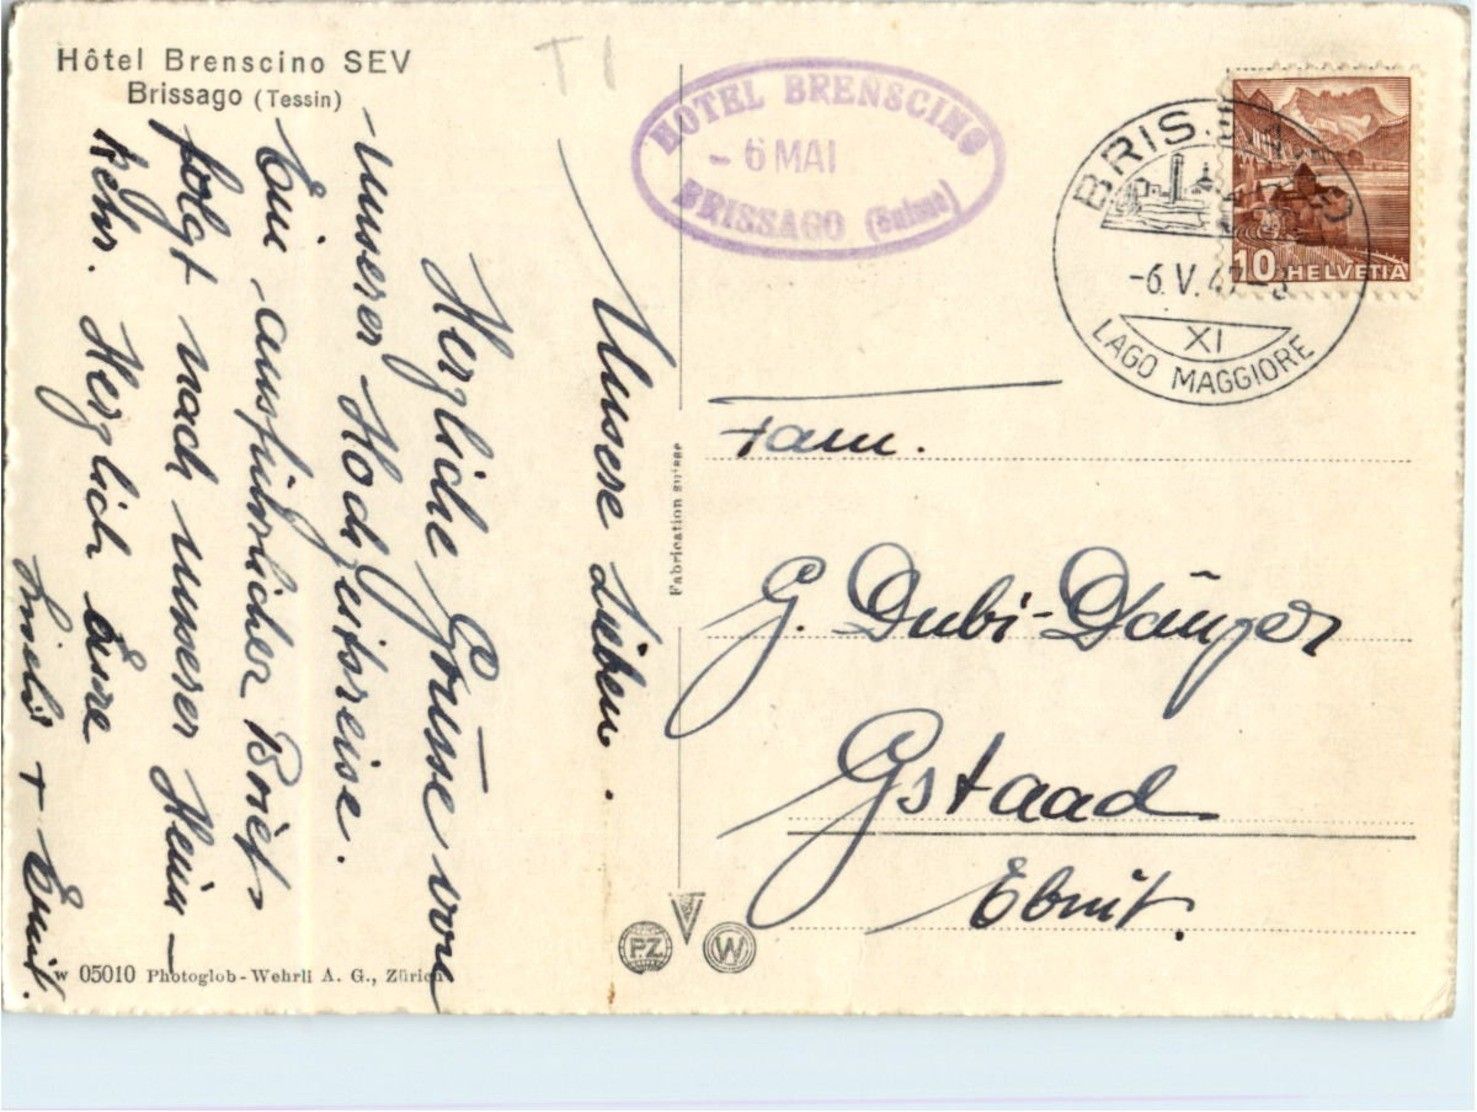 Hôtel Brenscino SEV
Brissago (Tessin)
T I
HOTEL BRENSCINO
- 6 MAI
BRISSAGO (Suisse)
BRISSAGO
-6. V. 47-8
XI
LAGO MAGGIORE
10 HELVETIA
Unsere Lieben.
Herzliche Grüsse von
unserer Hochzeitsreise.
Ein ausführlicher Brief
folgt nach unserer Heim-
kehr. Herzlich Eure
+ Emil.
Fam.
G. Dubi-Dänzer
Gstaad
Ebnit.
Fabrication suisse
PZ
W
W 05010 Photoglob-Wehrli A. G., Zürich